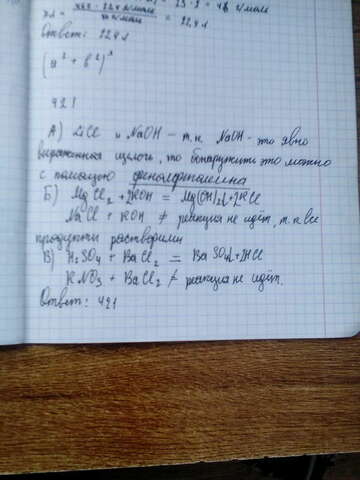 = 22,4 л
Ответ: 22,4 л
(a² + b²)
421
А) LiCl и NaOH – т.к. NaOH – это явно
выраженная щелочь, то обнаружить это можно
с помощью фенолфталеина
Б) MgCl₂ + 2KOH = Mg(OH)₂↓ + 2KCl
NaCl + KOH ≠ реакция не идёт, т.к все
продукты растворимы
В) H₂SO₄ + BaCl₂ = BaSO₄↓ + 2HCl
KNO₃ + BaCl₂ ≠ реакция не идёт.
Ответ: 421